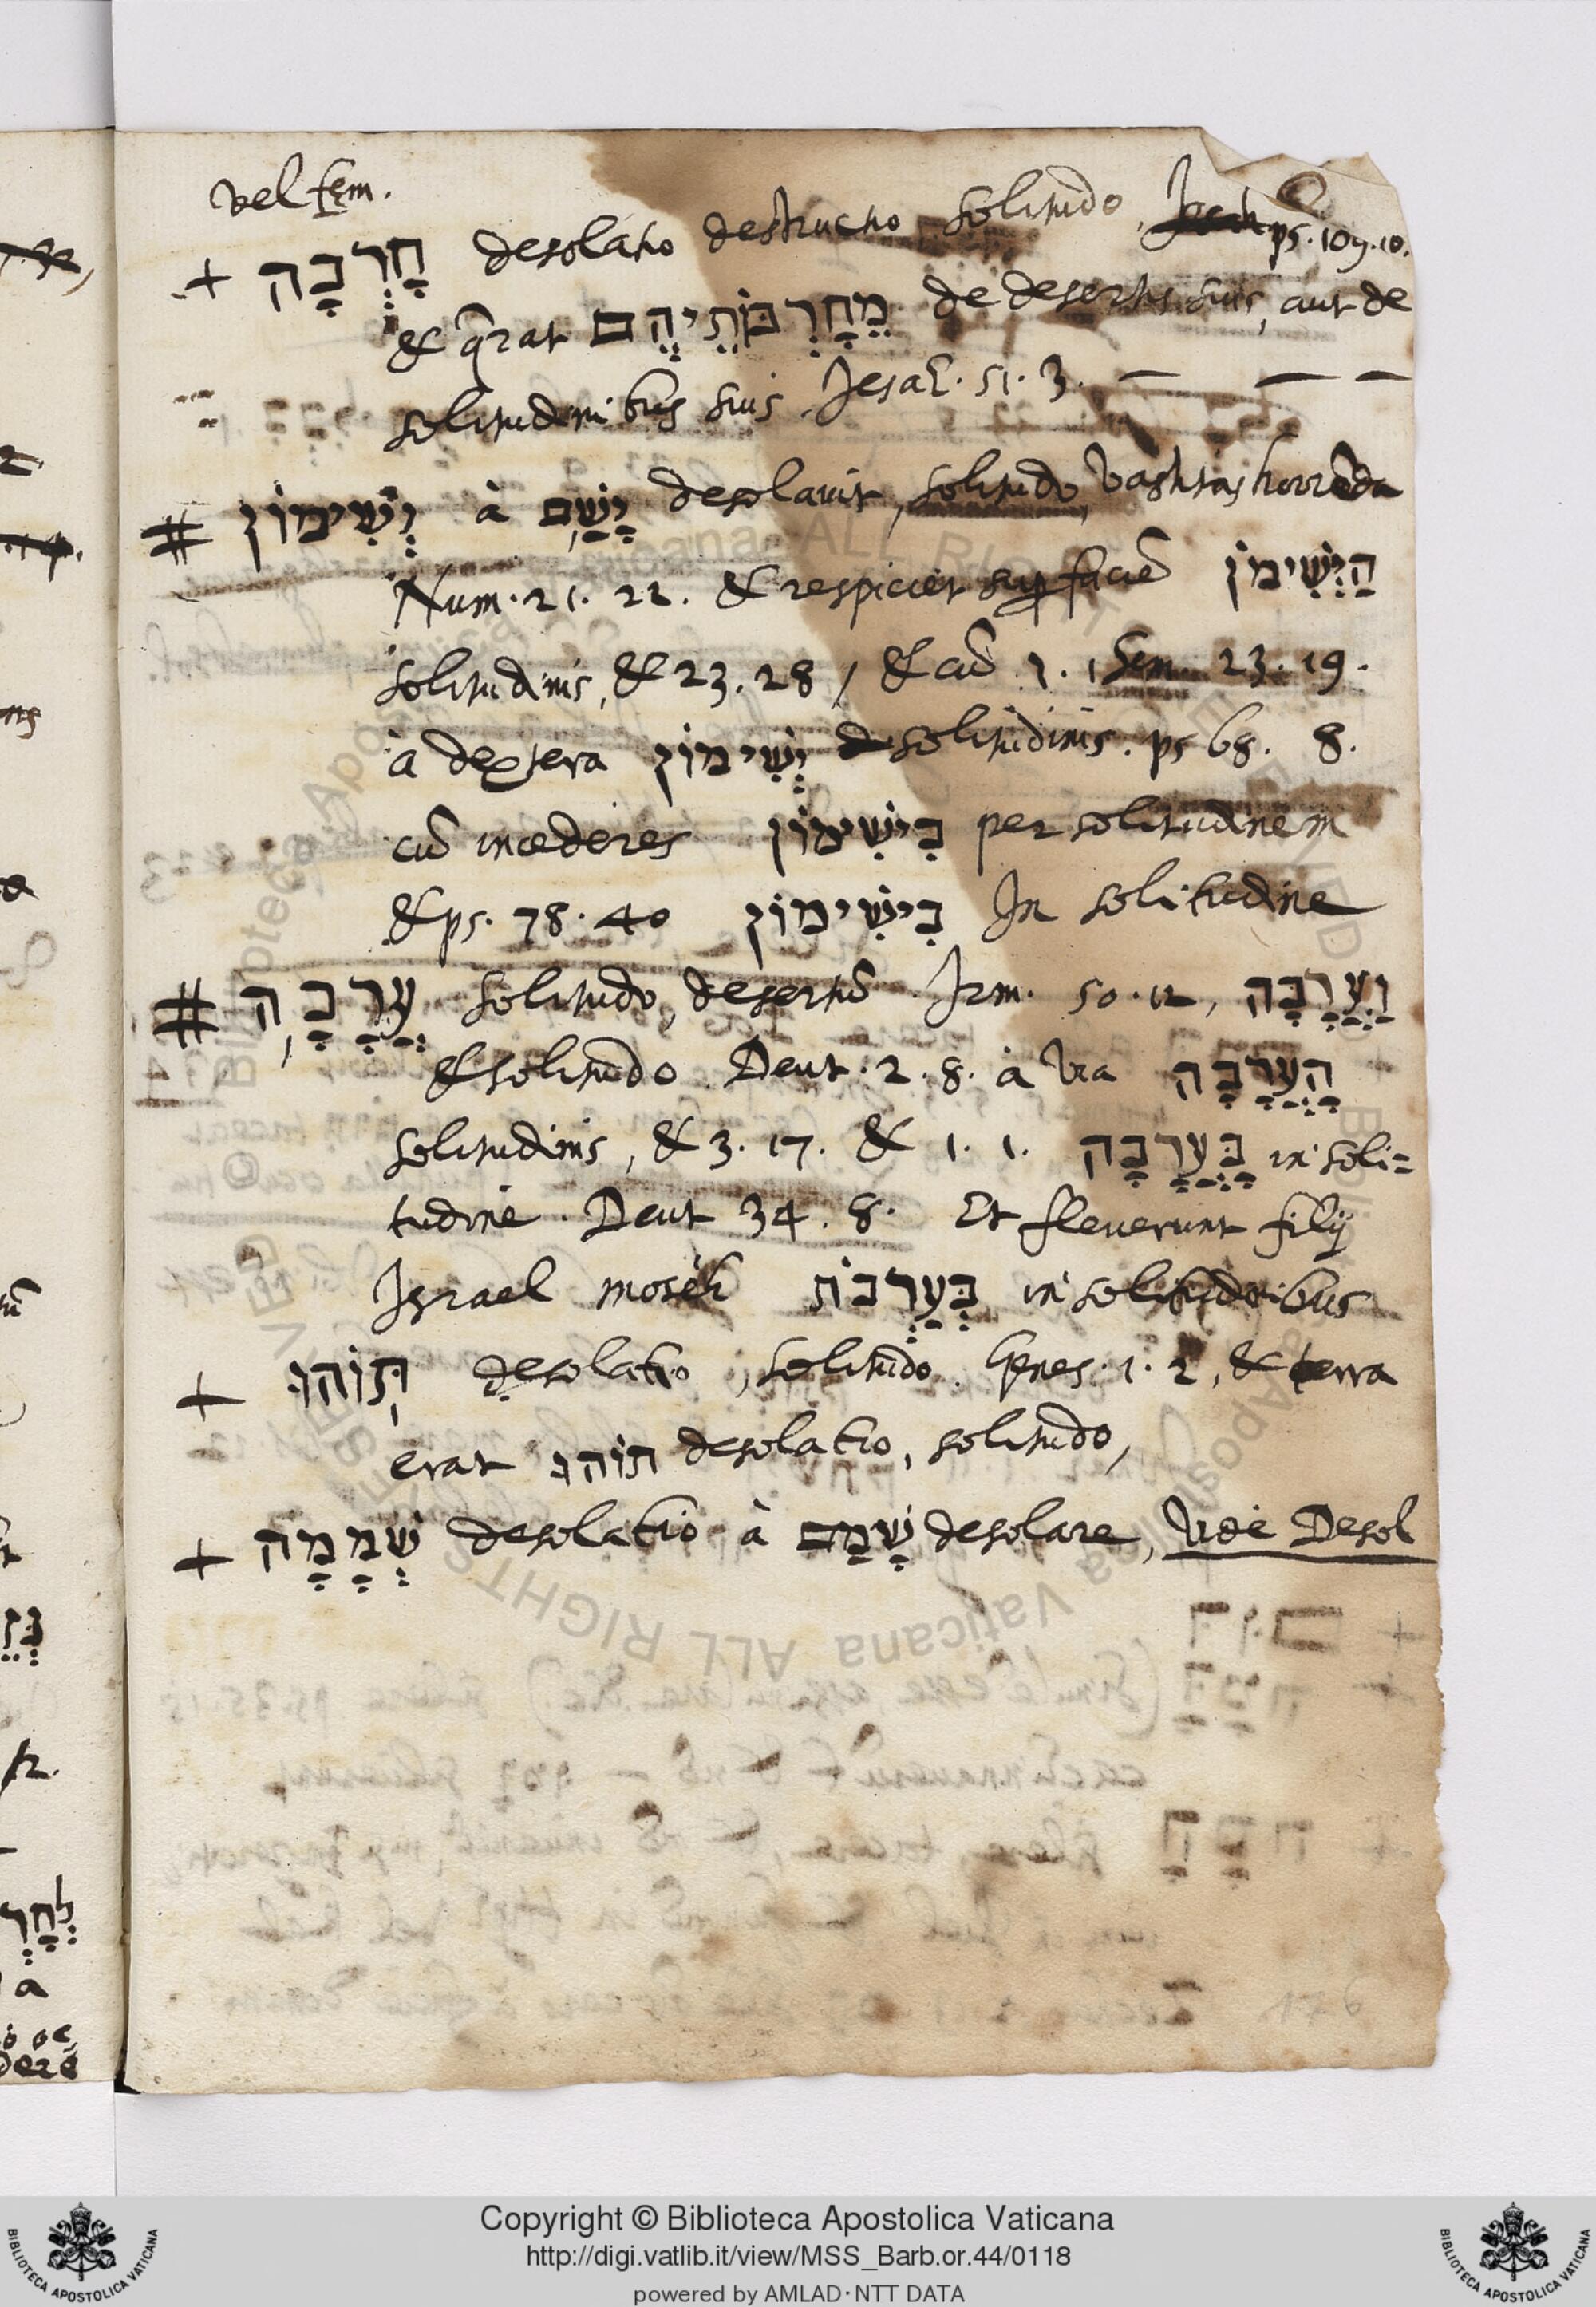 vel fem.
+ חָרְבָּה desolatio destructio, solitudo, ps. 109.10.
& q̃rat מֵחָרְבֹּתֵיהֶם de desertis suis, aut de
solitudinibus suis Jesai. 51. 3. — — —
# יְשִׁימוֹן à יָשַׁם desolavit, solitudo, vastitas horrenda
Num. 21. 22. & respiciet sup faciẽ הַיְשִׁימֹן
solitudinis, & 23. 28, & cũ 1. Sem. 23. 19.
à dextera יְשִׁימוֹן solitudinis. ps 68. 8.
cũ incederes בִּישִׁימוֹן per solitudinem
& ps. 78. 40 בִּישִׁימוֹן In solitudine
# עֲרָבָה solitudo, desertũ Irm. 50. 12, וַעֲרָבָה
& solitudo Deut. 2. 8. à via הָעֲרָבָה
solitudinis, & 3. 17. & 1. 1. בָּעֲרָבָה in soli=
tudine. Deut 34. 8. Et fleverunt filij
Israel moseh בְּעַרְבֹת in solitudinibus
+ תּוֹהוּ desolatio, solitudo. Genes. 1. 2, & terra
erat תוֹהוּ desolatio, solitudo,
+ שְׁמָמָה desolatio à שָׁמַם desolare, Vide Desol
Copyright © Biblioteca Apostolica Vaticana
http://digi.vatlib.it/view/MSS_Barb.or.44/0118
powered by AMLAD · NTT DATA